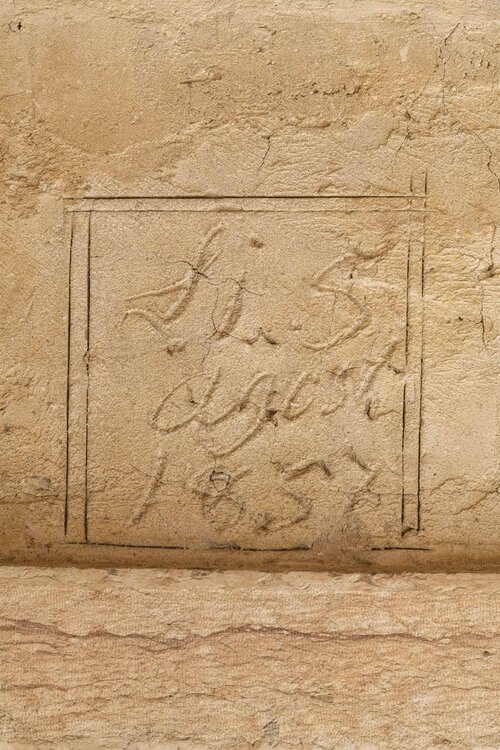 Li. 5
agost
1857